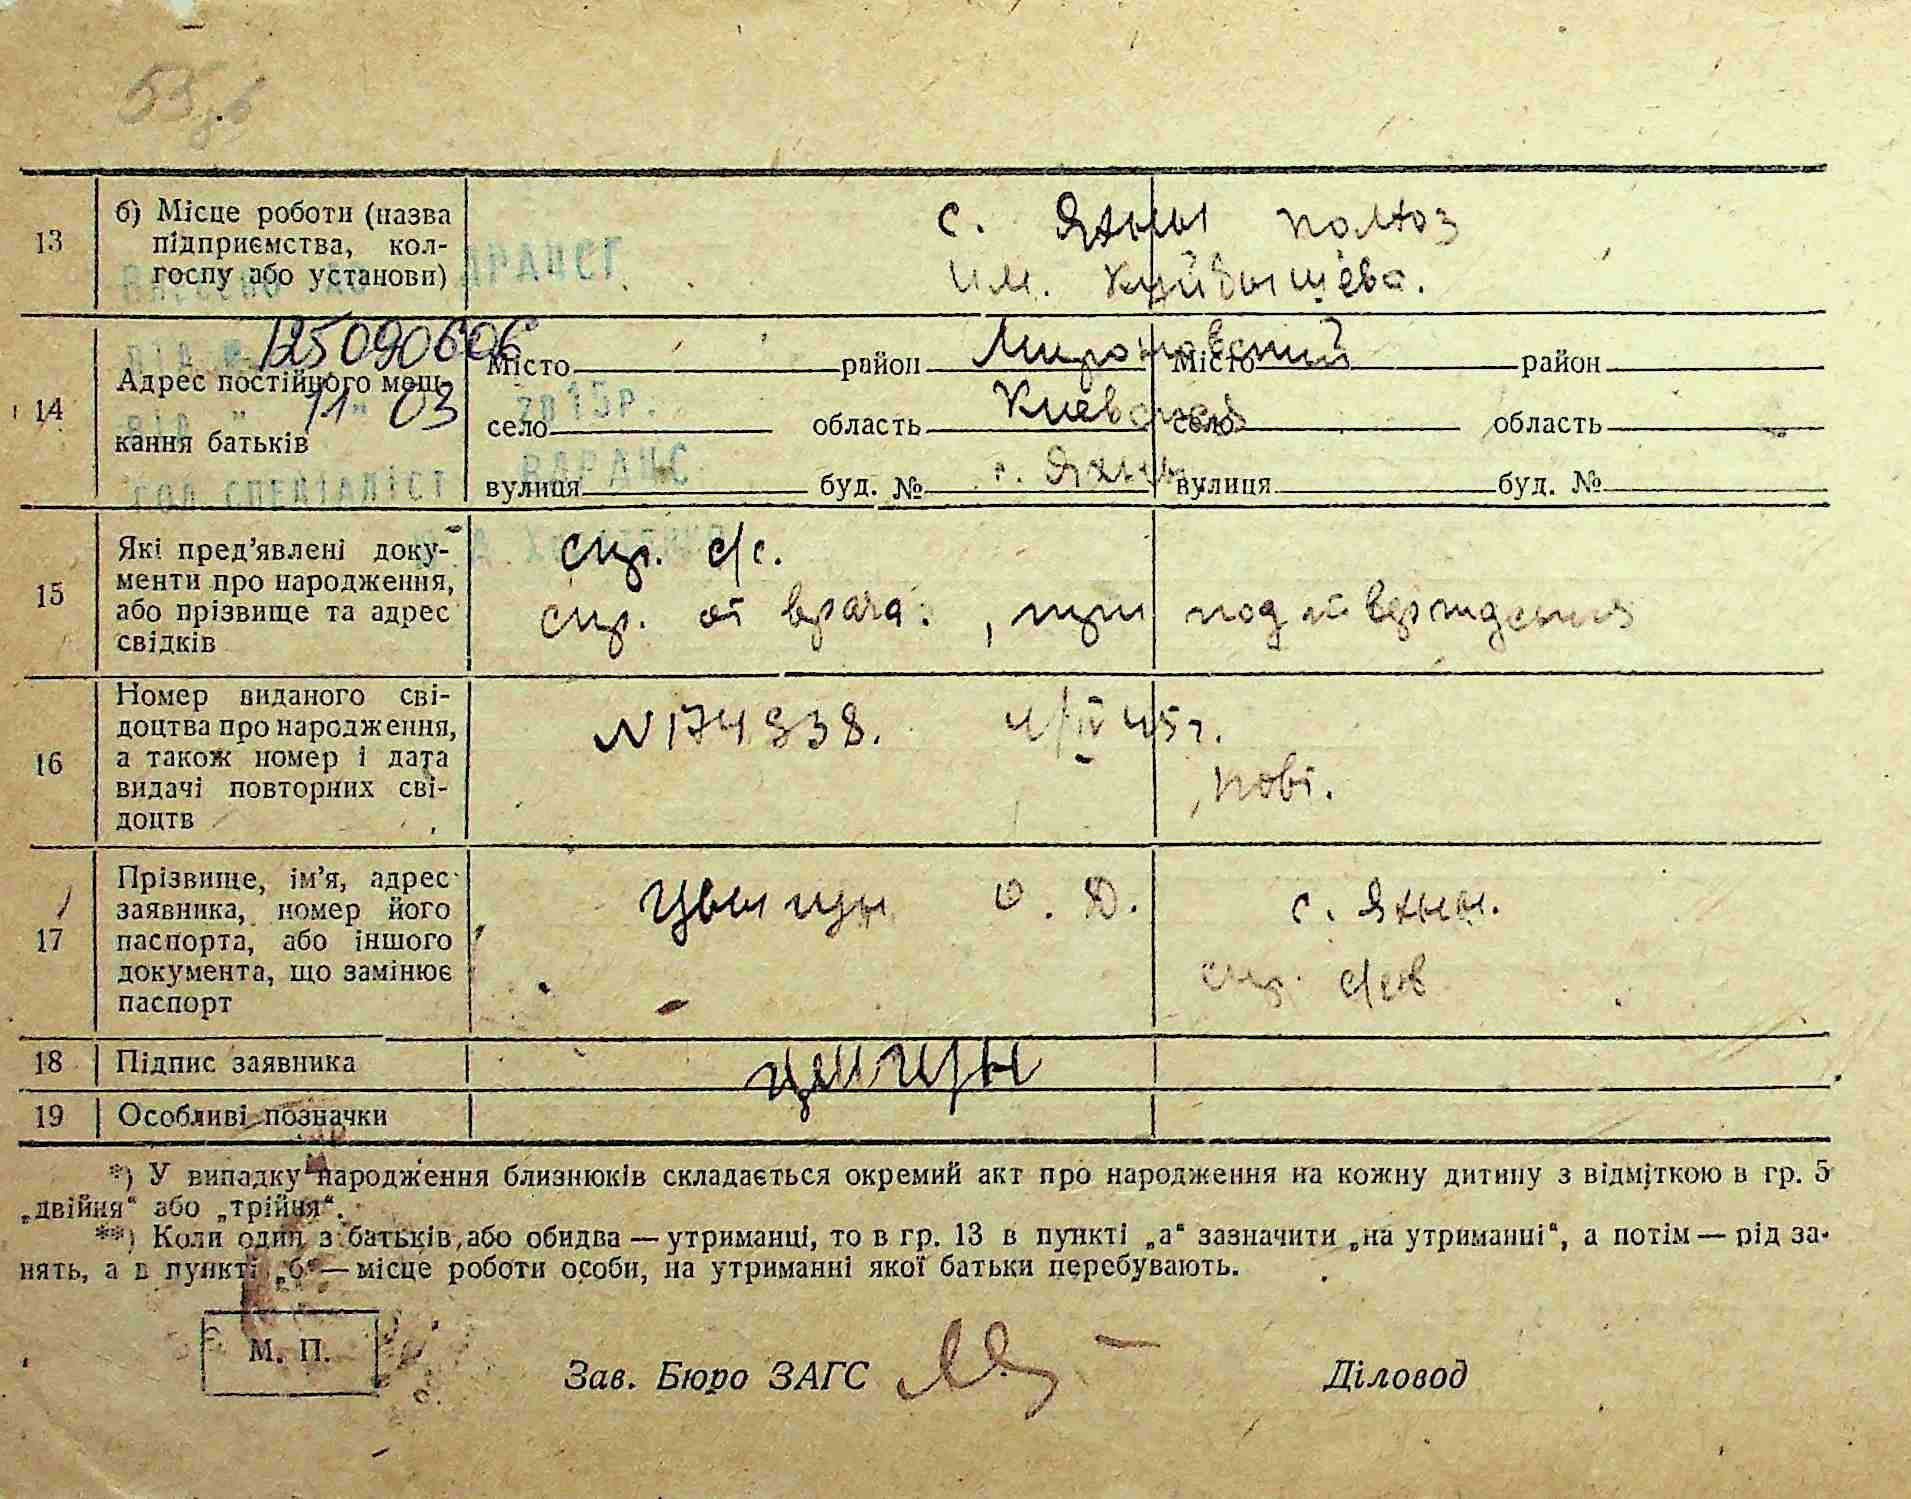 13
б) Місце роботи (назва
підприємства, кол-
госпу або установи)
с. Яхны колхоз
им. Куйбышева.
ДРАЦСГ
125090606
14
Адрес постійного меш-
кання батьків
11 03
2015р.
Місто район Мироновский
село область Киевская
вулиця буд. № с. Яхны
Місто район
село область
вулиця буд. №
ВДРАЦС
ГОЛ.СПЕЦІАЛІСТ
15
Які пред’явлені доку-
менти про народження,
або прізвище та адрес
свідків
спр. с/с.
спр. от врача. , при подтверждения
16
Номер виданого сві-
доцтва про народження,
а також номер і дата
видачі повторних сві-
доцтв
N 174938. 4/IV 45г.
17
Прізвище, ім’я, адрес
заявника, номер його
паспорта, або іншого
документа, що замінює
паспорт
О. Д.
с. Яхны.
спр. с/сов
18
Підпис заявника
19
Особливі позначки
*) У випадку народження близнюків складається окремий акт про народження на кожну дитину з відміткою в гр. 5
„двійня“ або „трійня“.
**) Коли один з батьків, або обидва — утриманці, то в гр. 13 в пункті „а“ зазначити „на утриманні“, а потім — рід за-
нять, а в пункті „б“ — місце роботи особи, на утриманні якої батьки перебувають.
М. П.
Зав. Бюро ЗАГС
Діловод